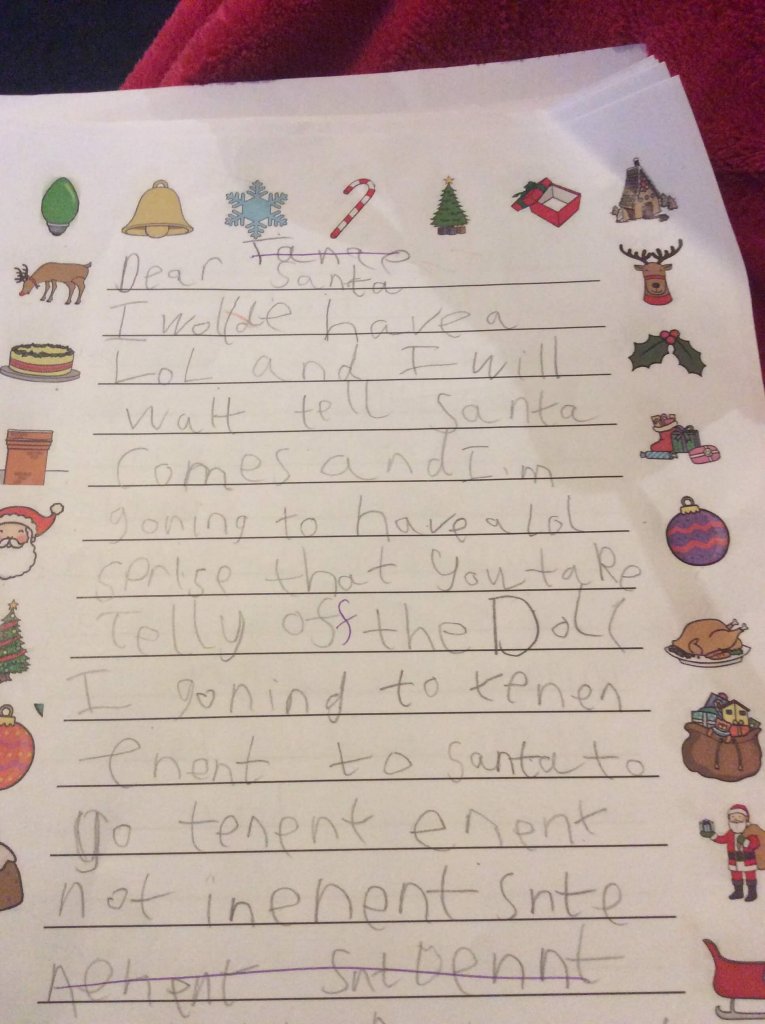 Dear Santa
I wollde have a
LoL and I will
watt tell santa
comes and I.m
goning to have a lol
serise that you take
Telly off the Doll
I goning to
enent to santa to
go tenent enent
not inenent snte